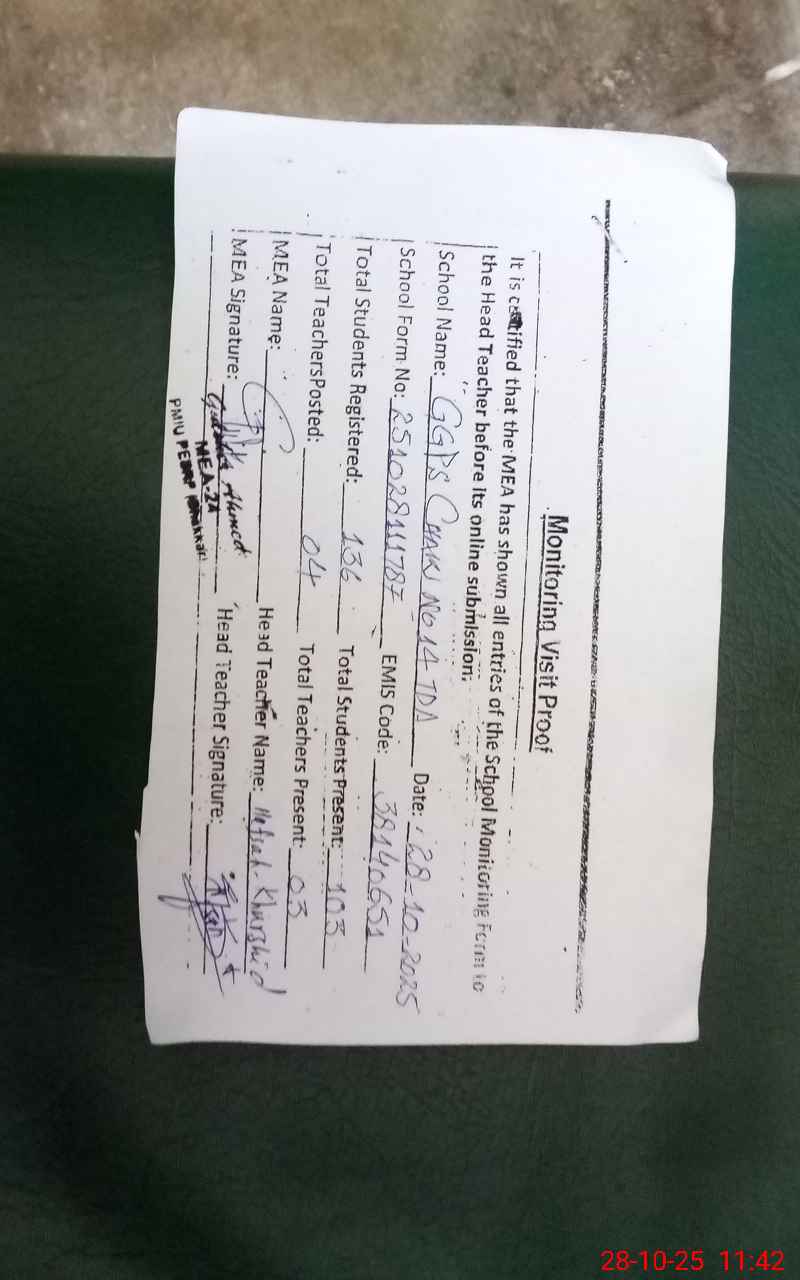 Monitoring Visit Proof
It is certified that the MEA has shown all entries of the School Monitoring Form to
the Head Teacher before its online submission.
School Name: GGPS CHAK NO 14 TDA Date: 28-10-2025
School Form No: 251028111787 EMIS Code: 38140651
Total Students Registered: 136 Total Students Present: 103
Total Teachers Posted: 04 Total Teachers Present: 03
MEA Name: Head Teacher Name: Hafsah Khurshid
MEA Signature: Head Teacher Signature:
Ahmed
MEA-2A
PMIU PESRP (Bhakkar)
28-10-25 11:42